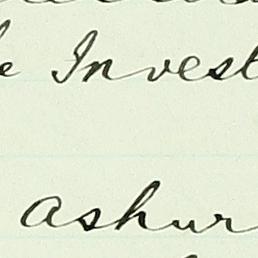 e Invest
ashur